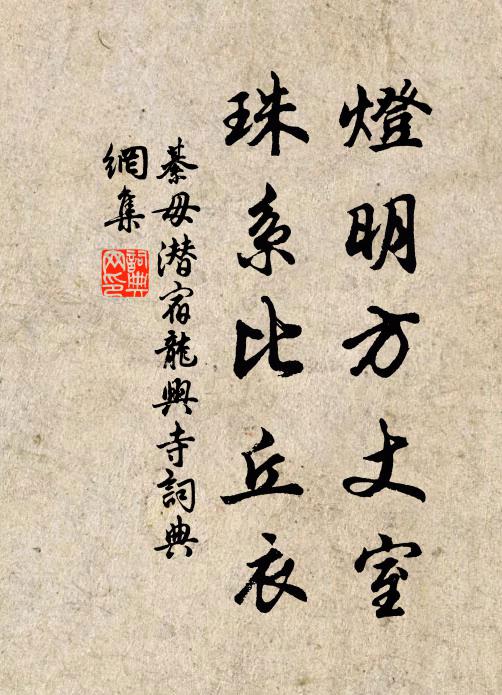 燈明方丈室
珠系比丘衣
綦毋潛宿龍興寺詞典
網集
詞典
网印